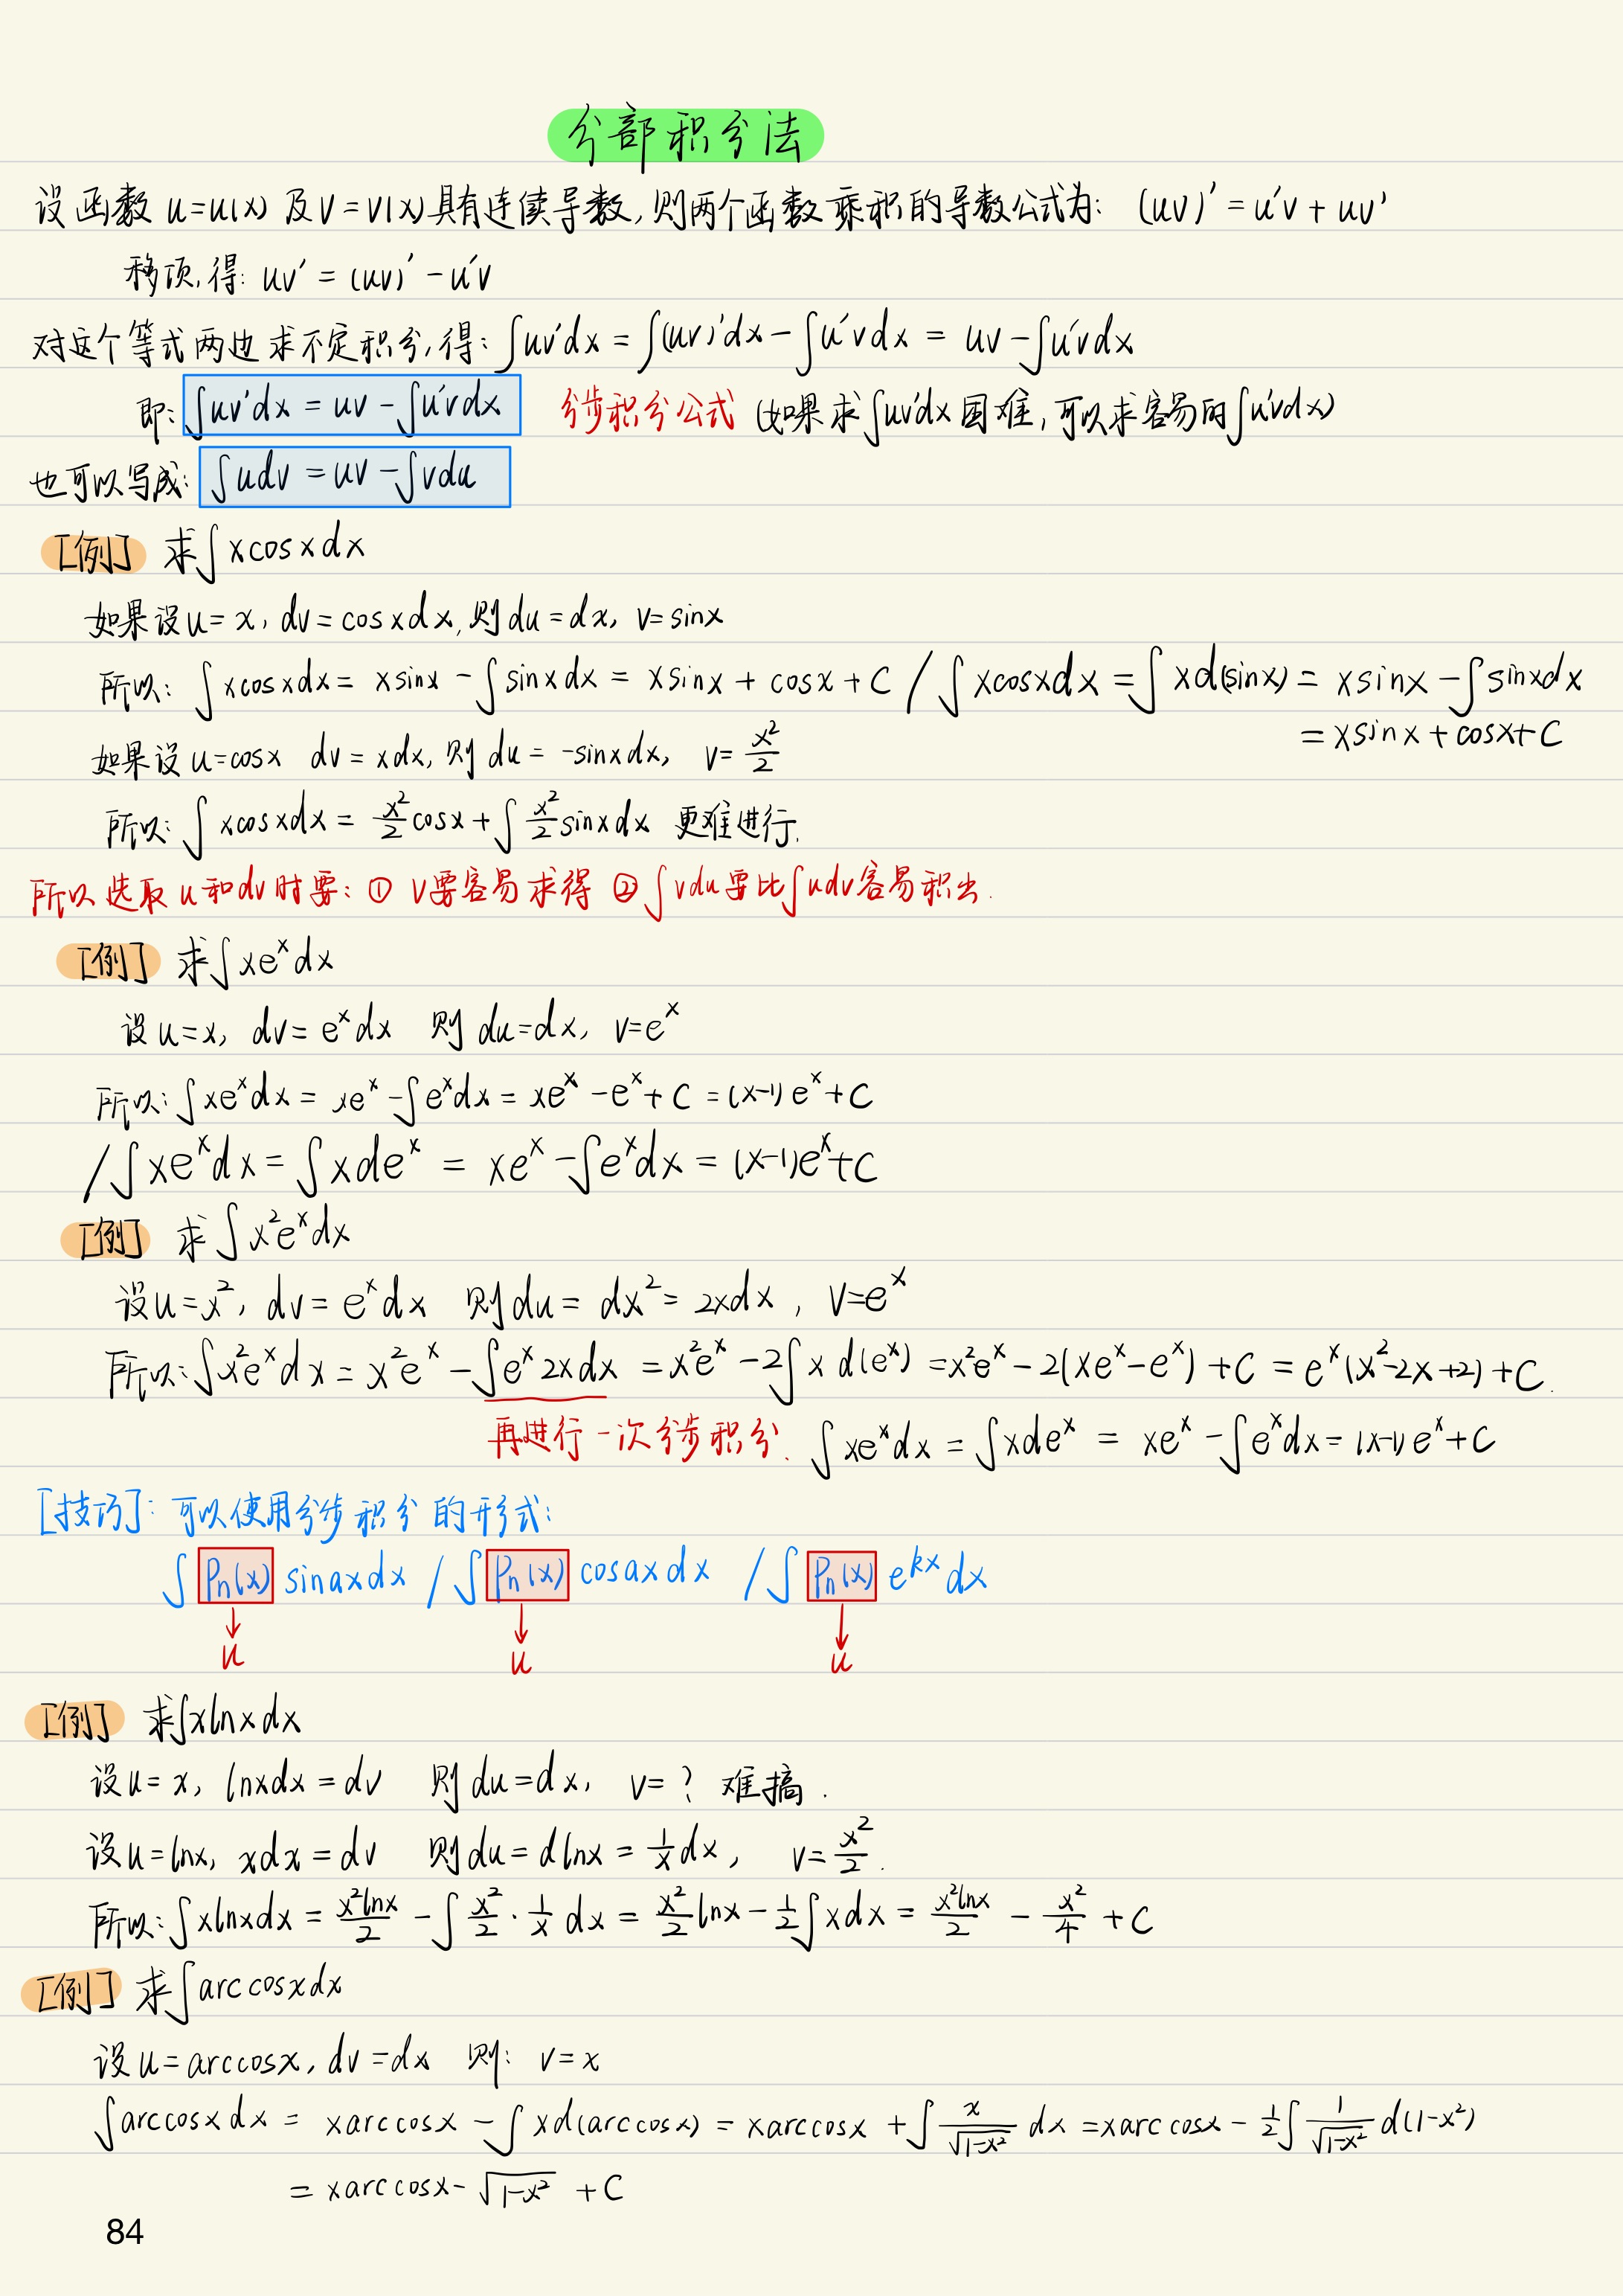 分部积分法
设函数 u=u(x) 及 v=v(x)具有连续导数,则两个函数乘积的导数公式为: (uv)′=u′v+uv′
移项,得: uv′=(uv)′-u′v
对这个等式两边求不定积分,得: ∫uv′dx=∫(uv)′dx-∫u′vdx=uv-∫u′vdx
即: ∫uv′dx=uv-∫u′vdx 分步积分公式 (如果求∫uv′dx困难,可以求容易的∫u′vdx)
也可以写成: ∫udv=uv-∫vdu
[例] 求∫xcosxdx
如果设u=x, dv=cosxdx,则du=dx, v=sinx
所以: ∫xcosxdx=xsinx-∫sinxdx=xsinx+cosx+C /∫xcosxdx=∫xd(sinx)=xsinx-∫sinxdx
=xsinx+cosx+C
如果设u=cosx dv=xdx,则du=-sinxdx, v=x²/2
所以: ∫xcosxdx=x²/2 cosx+∫x²/2 sinxdx 更难进行.
所以选取u和dv时要: ① v要容易求得 ② ∫vdu要比∫udv容易积出.
[例] 求∫xeˣdx
设u=x, dv=eˣdx 则du=dx, v=eˣ
所以: ∫xeˣdx=xeˣ-∫eˣdx=xeˣ-eˣ+C=(x-1)eˣ+C
/∫xeˣdx=∫xdeˣ=xeˣ-∫eˣdx=(x-1)eˣ+C
[例] 求∫x²eˣdx
设u=x², dv=eˣdx 则du=dx²=2xdx, v=eˣ
所以: ∫x²eˣdx=x²eˣ-∫eˣ2xdx=x²eˣ-2∫xd(eˣ)=x²eˣ-2(xeˣ-eˣ)+C=eˣ(x²-2x+2)+C.
再进行一次分步积分. ∫xeˣdx=∫xdeˣ=xeˣ-∫eˣdx=(x-1)eˣ+C
[技巧]: 可以使用分步积分的形式:
∫Pₙ(x)sinaxdx /∫Pₙ(x)cosaxdx /∫Pₙ(x)eᵏˣdx
↓ ↓ ↓
u u u
[例] 求∫xlnxdx
设u=x, lnxdx=dv 则du=dx, v=? 难搞.
设u=lnx, xdx=dv 则du=dlnx=1/x dx, v=x²/2.
所以: ∫xlnxdx=x²lnx/2-∫x²/2·1/x dx=x²/2 lnx-1/2∫xdx=x²lnx/2-x²/4+C
[例] 求∫arccosxdx
设u=arccosx, dv=dx 则: v=x
∫arccosxdx=xarccosx-∫xd(arccosx)=xarccosx+∫x/√(1-x²) dx=xarccosx-1/2∫1/√(1-x²) d(1-x²)
=xarccosx-√(1-x²)+C
84